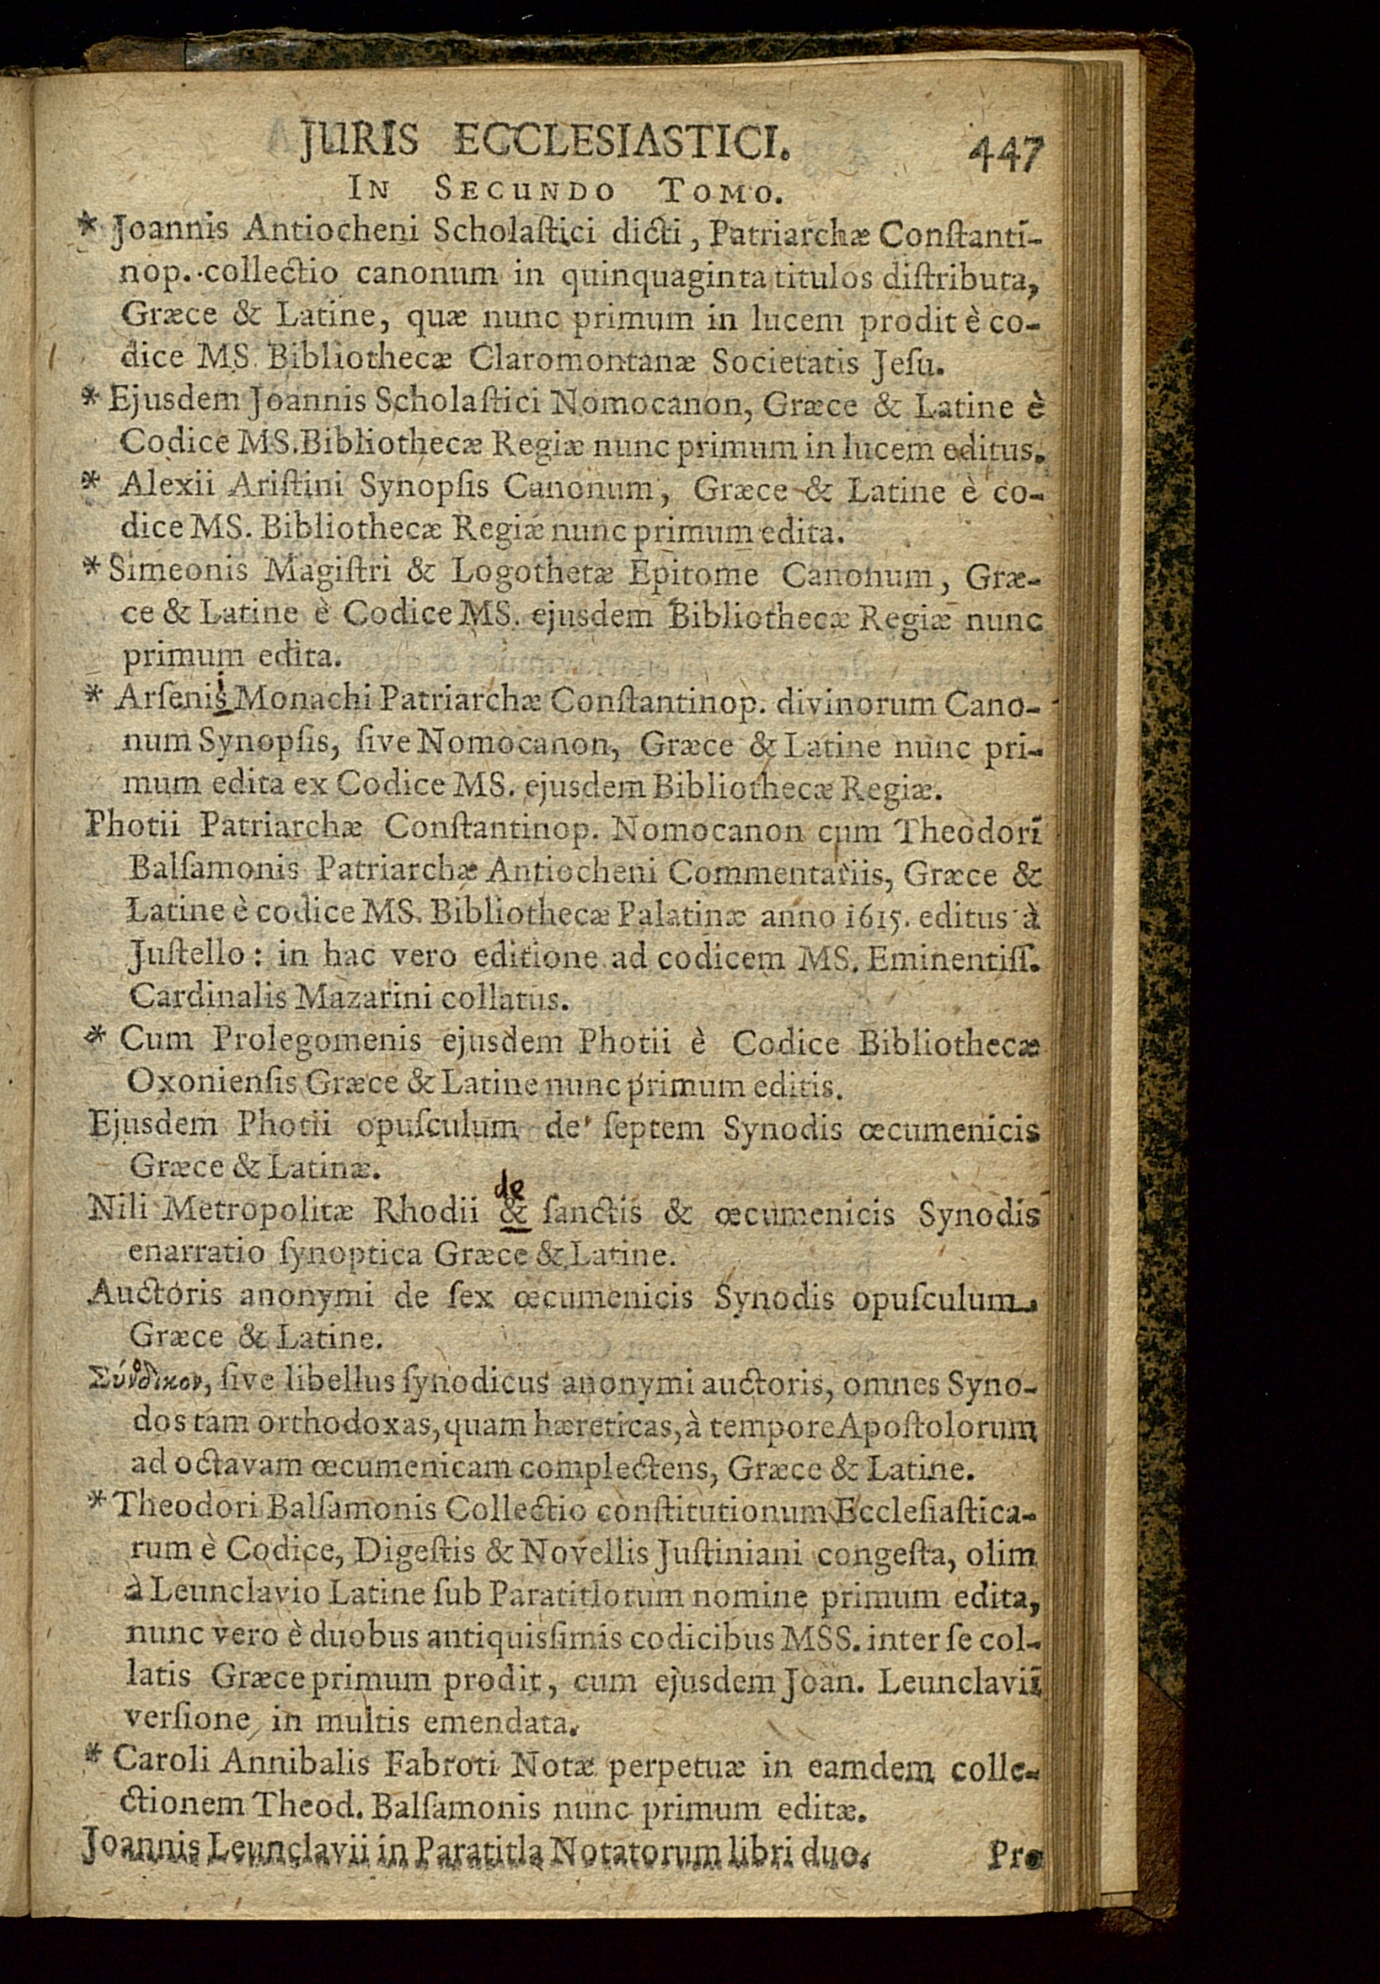 JURIS ECCLESIASTICI. 447
IN SECUNDO TOMO.
* Joannis Antiocheni Scholaſtici dicti, Patriarchæ Conſtanti-
nop. collectio canonum in quinquaginta titulos diſtributa,
Græce & Latine, quæ nunc primum in lucem prodit è co-
dice MS. Bibliothecæ Claromontanæ Societatis Jeſu.
* Ejusdem Joannis Scholaſtici Nomocanon, Græce & Latine è
Codice MS. Bibliothecæ Regiæ nunc primum in lucem editus.
* Alexii Ariſtini Synopſis Canonum, Græce & Latine è co-
dice MS. Bibliothecæ Regiæ nunc primum edita.
* Simeonis Magiſtri & Logothetæ Epitome Canonum, Græ-
ce & Latine è Codice MS. ejusdem Bibliothecæ Regiæ nunc
primum edita.
i
* Arſenis Monachi Patriarchæ Conſtantinop. divinorum Cano-
num Synopſis, ſive Nomocanon, Græce & Latine nunc pri-
mum edita ex Codice MS. ejusdem Bibliothecæ Regiæ.
Photii Patriarchæ Conſtantinop. Nomocanon cum Theodori
Balſamonis Patriarchæ Antiocheni Commentariis, Græce &
Latine è codice MS. Bibliothecæ Palatinæ anno 1615. editus à
Juſtello: in hac vero editione ad codicem MS. Eminentiſſ.
Cardinalis Mazarini collatus.
* Cum Prolegomenis ejusdem Photii è Codice Bibliothecæ
Oxonienſis Græce & Latine nunc primum editis.
Ejusdem Photii opuſculum de ſeptem Synodis œcumenicis
Græce & Latinæ.
de
Nili Metropolitæ Rhodii & ſanctis & œcumenicis Synodis
enarratio ſynoptica Græce & Latine.
Auctoris anonymi de ſex œcumenicis Synodis opuſculum
Græce & Latine.
Σύνοδικον, ſive libellus ſynodicus anonymi auctoris, omnes Syno-
dos tam orthodoxas, quam hæreticas, à tempore Apoſtolorum
ad octavam œcumenicam complectens, Græce & Latine.
* Theodori Balſamonis Collectio conſtitutionum Eccleſiaſtica-
rum è Codice, Digeſtis & Novellis Juſtiniani congeſta, olim
à Leunclavio Latine ſub Paratitlorum nomine primum edita,
nunc vero è duobus antiquisſimis codicibus MSS. inter ſe col-
latis Græce primum prodit, cum ejusdem Joan. Leunclavii
verſione in multis emendata.
* Caroli Annibalis Fabroti Notæ perpetuæ in eamdem colle-
ctionem Theod. Balſamonis nunc primum editæ.
Joannis Leunclavii in Paratitla Notatorum libri duo. Pro